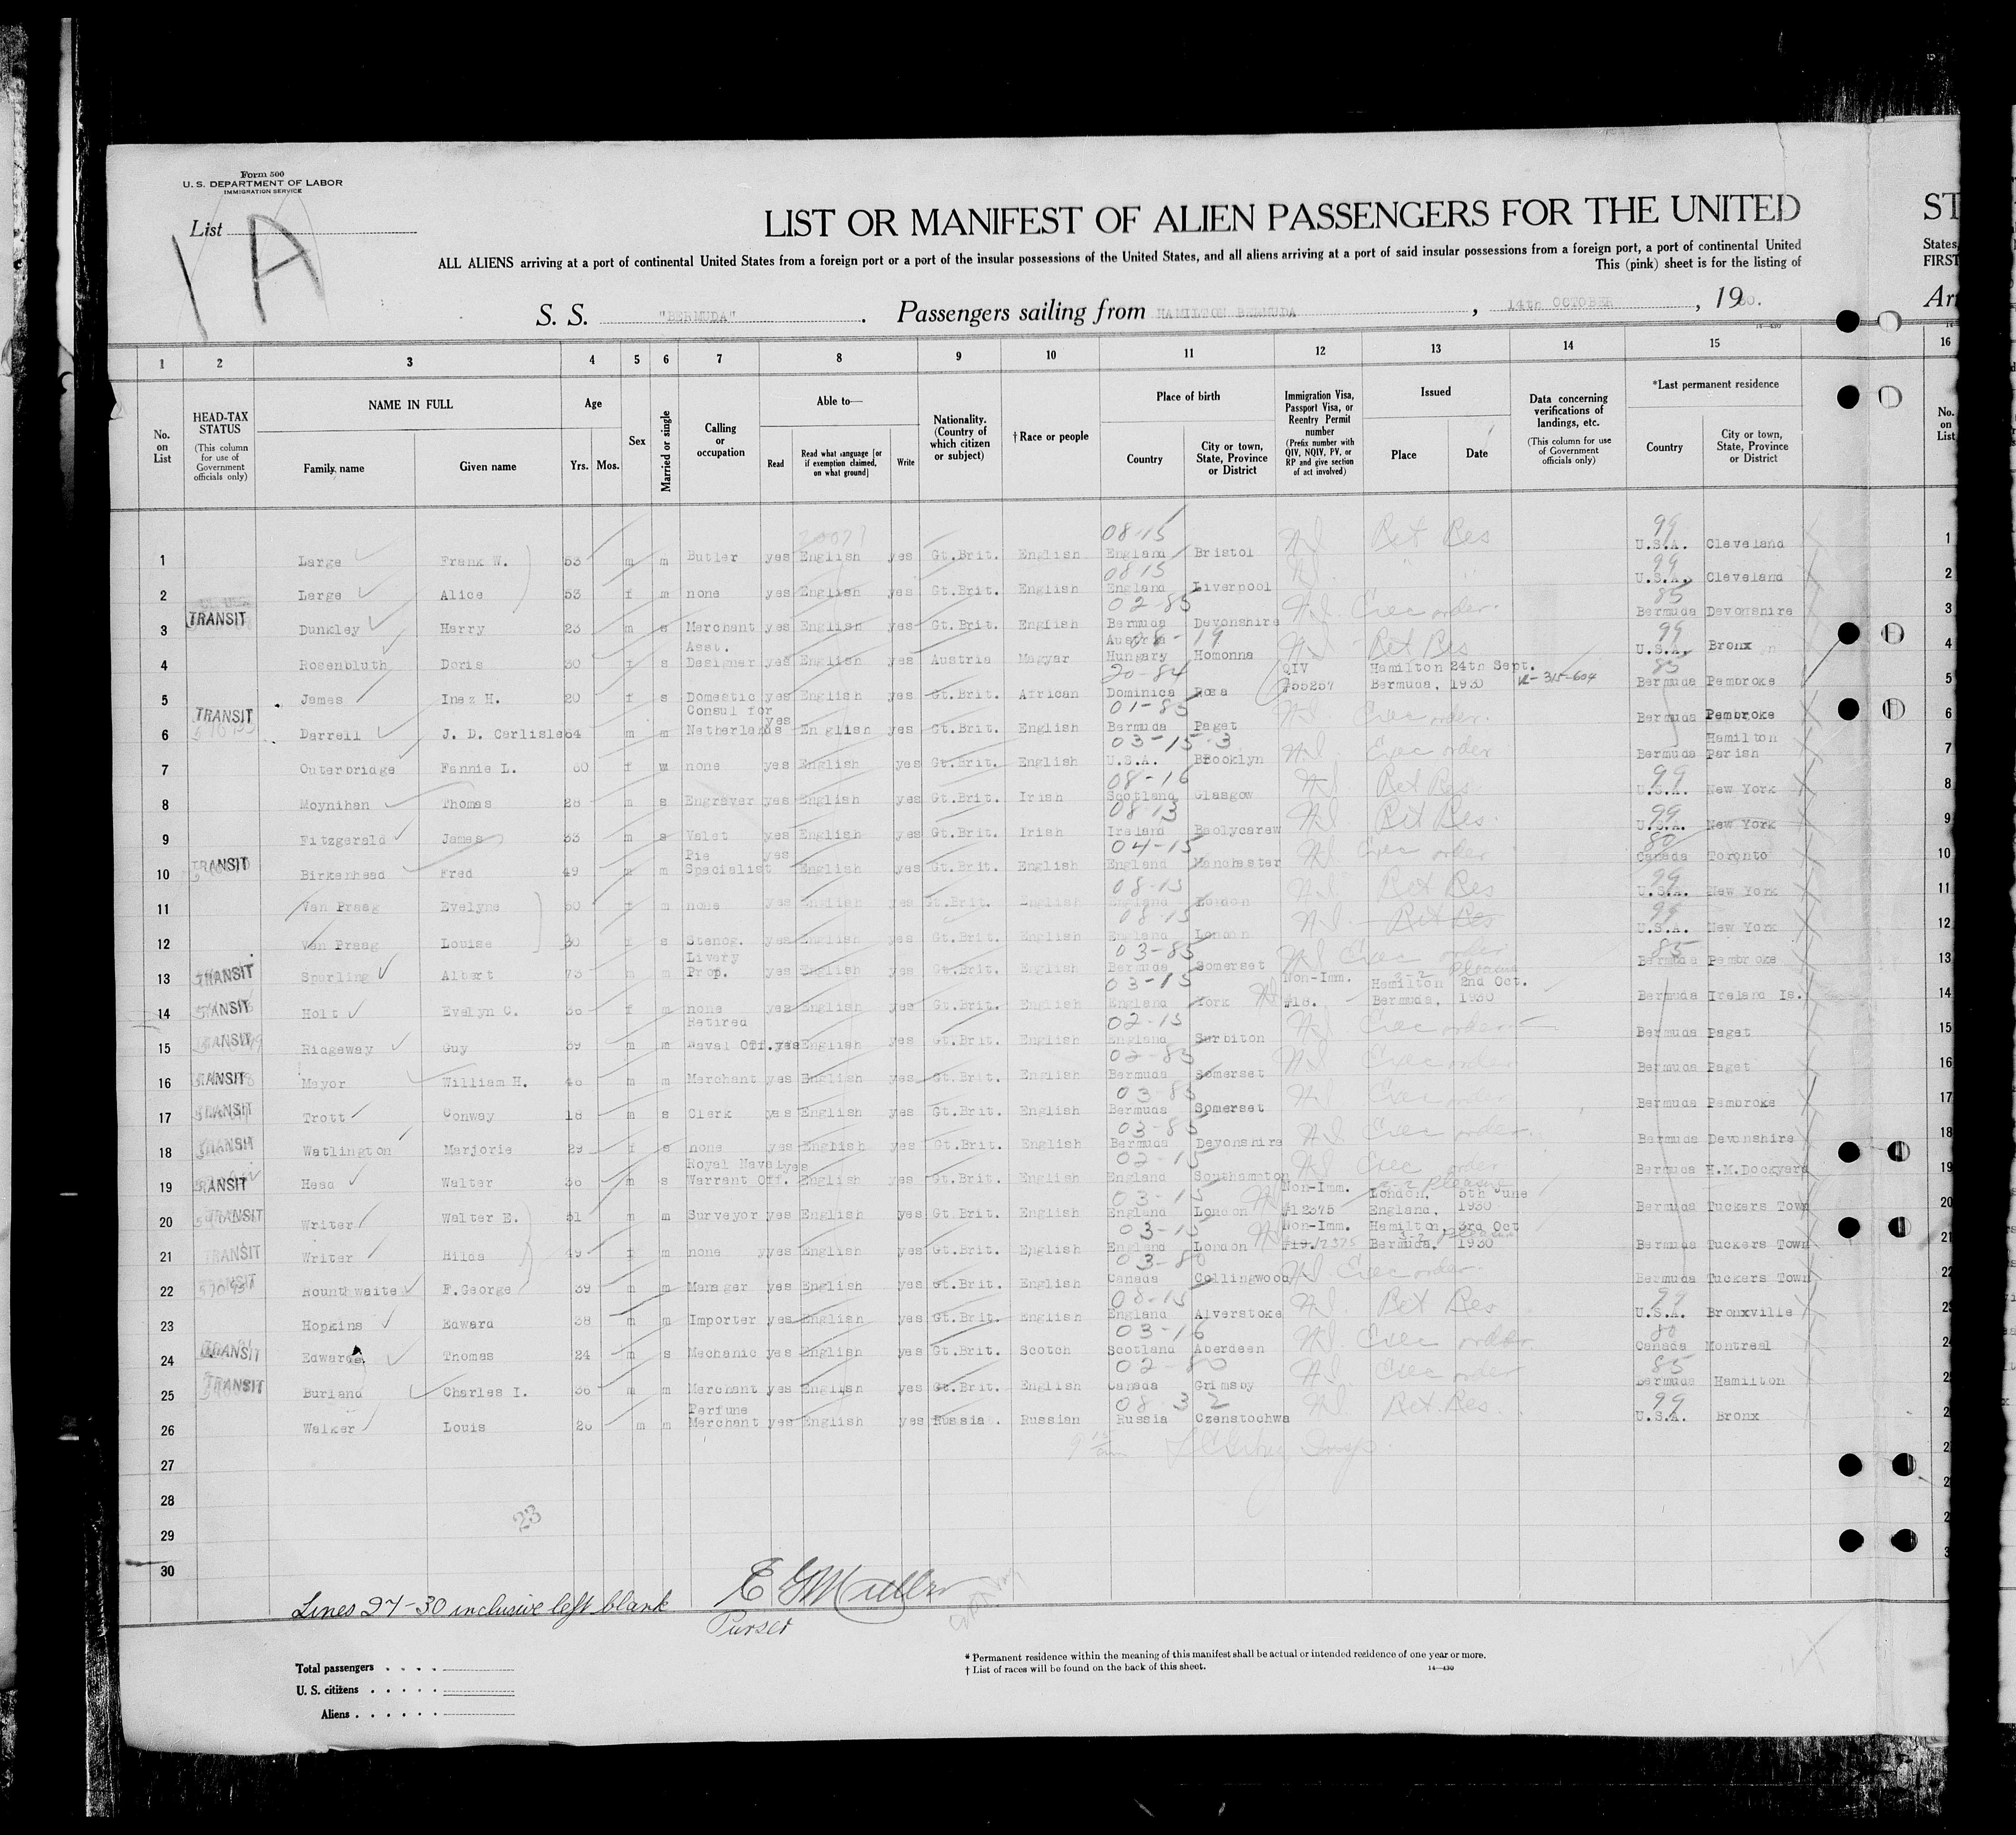 Form 500
U. S. DEPARTMENT OF LABOR
IMMIGRATION SERVICE
List
1 A
LIST OR MANIFEST OF ALIEN PASSENGERS FOR THE UNITED
ST
ALL ALIENS arriving at a port of continental United States from a foreign port or a port of the insular possessions of the United States, and all aliens arriving at a port of said insular possessions from a foreign port, a port of continental United
States,
This (pink) sheet is for the listing of
FIRST
S. S. "BERMUDA". Passengers sailing from HAMILTON BERMUDA, 14th OCTOBER, 1930.
Arr
14—430
1 2 3 4 5 6 7 8 9 10 11 12 13 14 15 16
No. on List
HEAD-TAX STATUS (This column for use of Government officials only)
NAME IN FULL
Family name Given name
Age
Yrs. Mos.
Sex
Married or single
Calling or occupation
Able to—
Read Read what language [or if exemption claimed, on what ground] Write
Nationality. (Country of which citizen or subject)
† Race or people
Place of birth
Country City or town, State, Province or District
Immigration Visa, Passport Visa, or Reentry Permit number (Prefix number with QIV, NQIV, PV, or RP and give section of act involved)
Issued
Place Date
Data concerning verifications of landings, etc. (This column for use of Government officials only)
*Last permanent residence
Country City or town, State, Province or District
No. on List
1 Large Frank W. 53 m m Butler yes English yes Gt.Brit. English 08-15 England Bristol Ret Res 99 U.S.A. Cleveland 1
2 Large Alice 53 f m none yes English yes Gt.Brit. English 08 15 England Liverpool 99 U.S.A. Cleveland 2
3 TRANSIT Dunkley Harry 23 m s Merchant yes English yes Gt.Brit. English 02-85 Bermuda Devonshire Exec order 85 Bermuda Devonshire 3
4 Rosenbluth Doris 30 f s Asst. Designer yes English yes Austria Magyar Austria Hungary Homonna Ret Res 99 U.S.A. Bronx 4
5 James Inez H. 20 f s Domestic yes English yes Gt.Brit. African 20-84 Dominica Rosa QIV #55257 Hamilton Bermuda, 24th Sept. 1930 R-315-604 85 Bermuda Pembroke 5
6 TRANSIT Darrell J. D. Carlisle 64 m m Consul for Netherlands yes English yes Gt.Brit. English 01-85 Bermuda Paget Exec order. Bermuda Pembroke 6
7 Outerbridge Fannie L. 60 f w none yes English yes Gt.Brit. English 03-15-3 U.S.A. Brooklyn Exec order Bermuda Hamilton Parish 7
8 Moynihan Thomas 28 m s Engraver yes English yes Gt.Brit. Irish 08-16 Scotland Glasgow Ret Res. 99 U.S.A. New York 8
9 Fitzgerald James 33 m s Valet yes English yes Gt.Brit. Irish 08-13 Ireland Baolycarew Ret Res. 99 U.S.A. New York 9
10 TRANSIT Birkenhead Fred 49 m m Pie Specialist yes English yes Gt.Brit. English 04-15 England Manchester Exec order 80 Canada Toronto 10
11 Van Praag Evelyne 50 f m none yes English yes Gt.Brit. English 08-15 England London Ret Res 99 U.S.A. New York 11
12 Van Praag Louise 30 f s Stenog. yes English yes Gt.Brit. English 08-15 England London Ret Res 99 U.S.A. New York 12
13 TRANSIT Spurling Albert 73 m m Livery Prop. yes English yes Gt.Brit. English 03-85 Bermuda Somerset Exec order 85 Bermuda Pembroke 13
14 TRANSIT Holt Evelyn C. 36 f m none yes English yes Gt.Brit. English 03-15 England York Non-Imm. #18. 3-2 Pleasure Hamilton Bermuda, 2nd Oct. 1930 Bermuda Ireland Is. 14
15 TRANSIT Ridgeway Guy 39 m m Retired Naval Off. yes English yes Gt.Brit. English 02-15 England Surbiton Exec order Bermuda Paget 15
16 TRANSIT Mayor William H. 46 m m Merchant yes English yes Gt.Brit. English 02-85 Bermuda Somerset Exec order Bermuda Paget 16
17 TRANSIT Trott Conway 18 m s Clerk yes English yes Gt.Brit. English 03-85 Bermuda Somerset Exec order Bermuda Pembroke 17
18 TRANSIT Watlington Marjorie 29 f s none yes English yes Gt.Brit. English 03-85 Bermuda Devonshire Exec order. Bermuda Devonshire 18
19 TRANSIT Head Walter 36 m s Royal Naval Warrant Off. yes English yes Gt.Brit. English 02-15 England Southampton Exec order Bermuda H.M.Dockyard 19
20 TRANSIT Writer Walter E. 51 m m Surveyor yes English yes Gt.Brit. English 03-15 England London Non-Imm. #12375 3-2 Pleasure London, England, 5th June 1930 Bermuda Tuckers Town 20
21 TRANSIT Writer Hilda 49 f m none yes English yes Gt.Brit. English 03-15 England London Non-Imm. #19. 12375 Hamilton, Bermuda, 3-2 Pleasure 3rd Oct 1930 Bermuda Tuckers Town 21
22 TRANSIT Rounthwaite F.George 39 m m Manager yes English yes Gt.Brit. English 03-80 Canada Collingwood Exec order. Bermuda Tuckers Town 22
23 Hopkins Edward 38 m m Importer yes English yes Gt.Brit. English 08-15 England Alverstoke Ret Res 99 U.S.A. Bronxville
24 TRANSIT Edwards Thomas 24 m s Mechanic yes English yes Gt.Brit. Scotch 03-16 Scotland Aberdeen Exec order. 80 Canada Montreal
25 TRANSIT Burland Charles I. 36 m m Merchant yes English yes Gt.Brit. English 02-80 Canada Grimsby Exec order 85 Bermuda Hamilton
26 Walker Louis 26 m m Perfume Merchant yes English yes Russia. Russian 08 32 Russia Czenstochwa Ret. Res. 99 U.S.A. Bronx
27
28
29
30
23
Lines 27-30 inclusive left blank
E G Muller
Purser
Total passengers
U. S. citizens
Aliens
* Permanent residence within the meaning of this manifest shall be actual or intended residence of one year or more.
† List of races will be found on the back of this sheet.
14—430